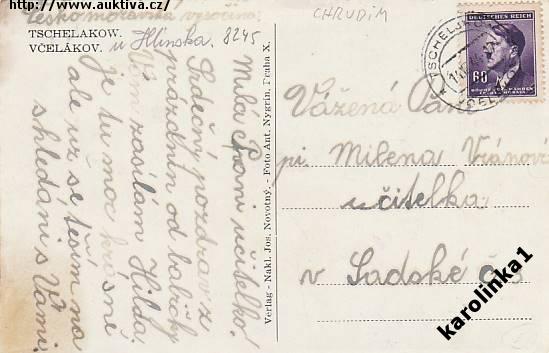 Zdroj: www.auktiva.cz
Českomoravská vysočina.
TSCHELAKOW.
VČELÁKOV.
u Hlinska. 8245
CHRUDIM
DEUTSCHES REICH
60
Milá Sponi učitelko!
Srdečný pozdrav z
prázdnin od babičky
Vám zasílám Hilda.
Je tu moc krásně
ale už se těším na
shledání s Vámi.
Verlag - Nakl. Jos. Novotný. - Foto Ant. Nygrin, Praha X.
Vážená Paní
pí Milena Vránová
učitelka
v Sadské
karolinka1